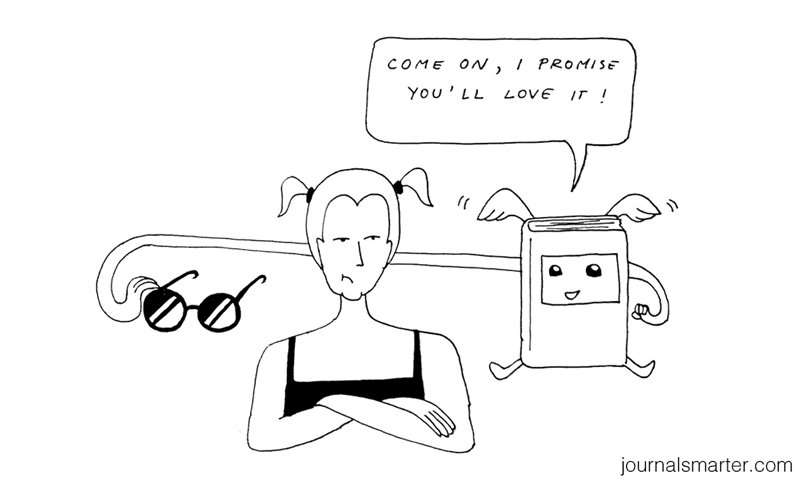 COME ON, I PROMISE
YOU'LL LOVE IT!
journalsmarter.com